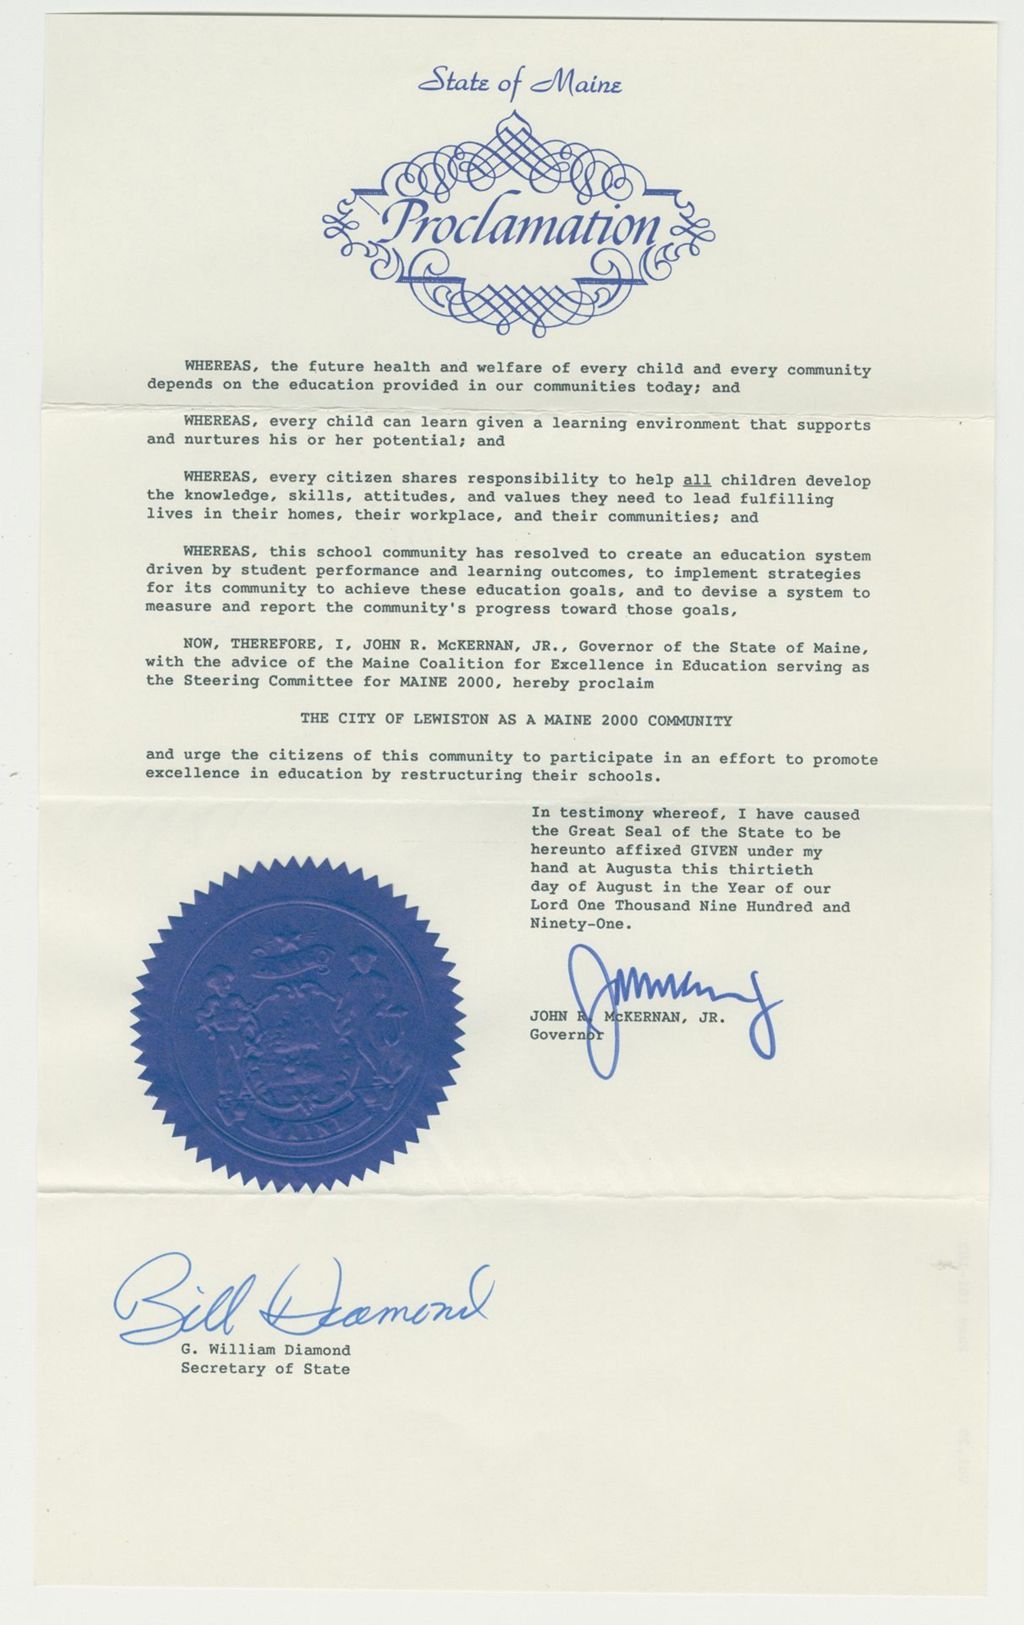 State of Maine
Proclamation
WHEREAS, the future health and welfare of every child and every community
depends on the education provided in our communities today; and
WHEREAS, every child can learn given a learning environment that supports
and nurtures his or her potential; and
WHEREAS, every citizen shares responsibility to help all children develop
the knowledge, skills, attitudes, and values they need to lead fulfilling
lives in their homes, their workplace, and their communities; and
WHEREAS, this school community has resolved to create an education system
driven by student performance and learning outcomes, to implement strategies
for its community to achieve these education goals, and to devise a system to
measure and report the community's progress toward those goals,
NOW, THEREFORE, I, JOHN R. McKERNAN, JR., Governor of the State of Maine,
with the advice of the Maine Coalition for Excellence in Education serving as
the Steering Committee for MAINE 2000, hereby proclaim
THE CITY OF LEWISTON AS A MAINE 2000 COMMUNITY
and urge the citizens of this community to participate in an effort to promote
excellence in education by restructuring their schools.
In testimony whereof, I have caused
the Great Seal of the State to be
hereunto affixed GIVEN under my
hand at Augusta this thirtieth
day of August in the Year of our
Lord One Thousand Nine Hundred and
Ninety-One.
JOHN R. McKERNAN, JR.
Governor
MAINE
Bill Diamond
G. William Diamond
Secretary of State